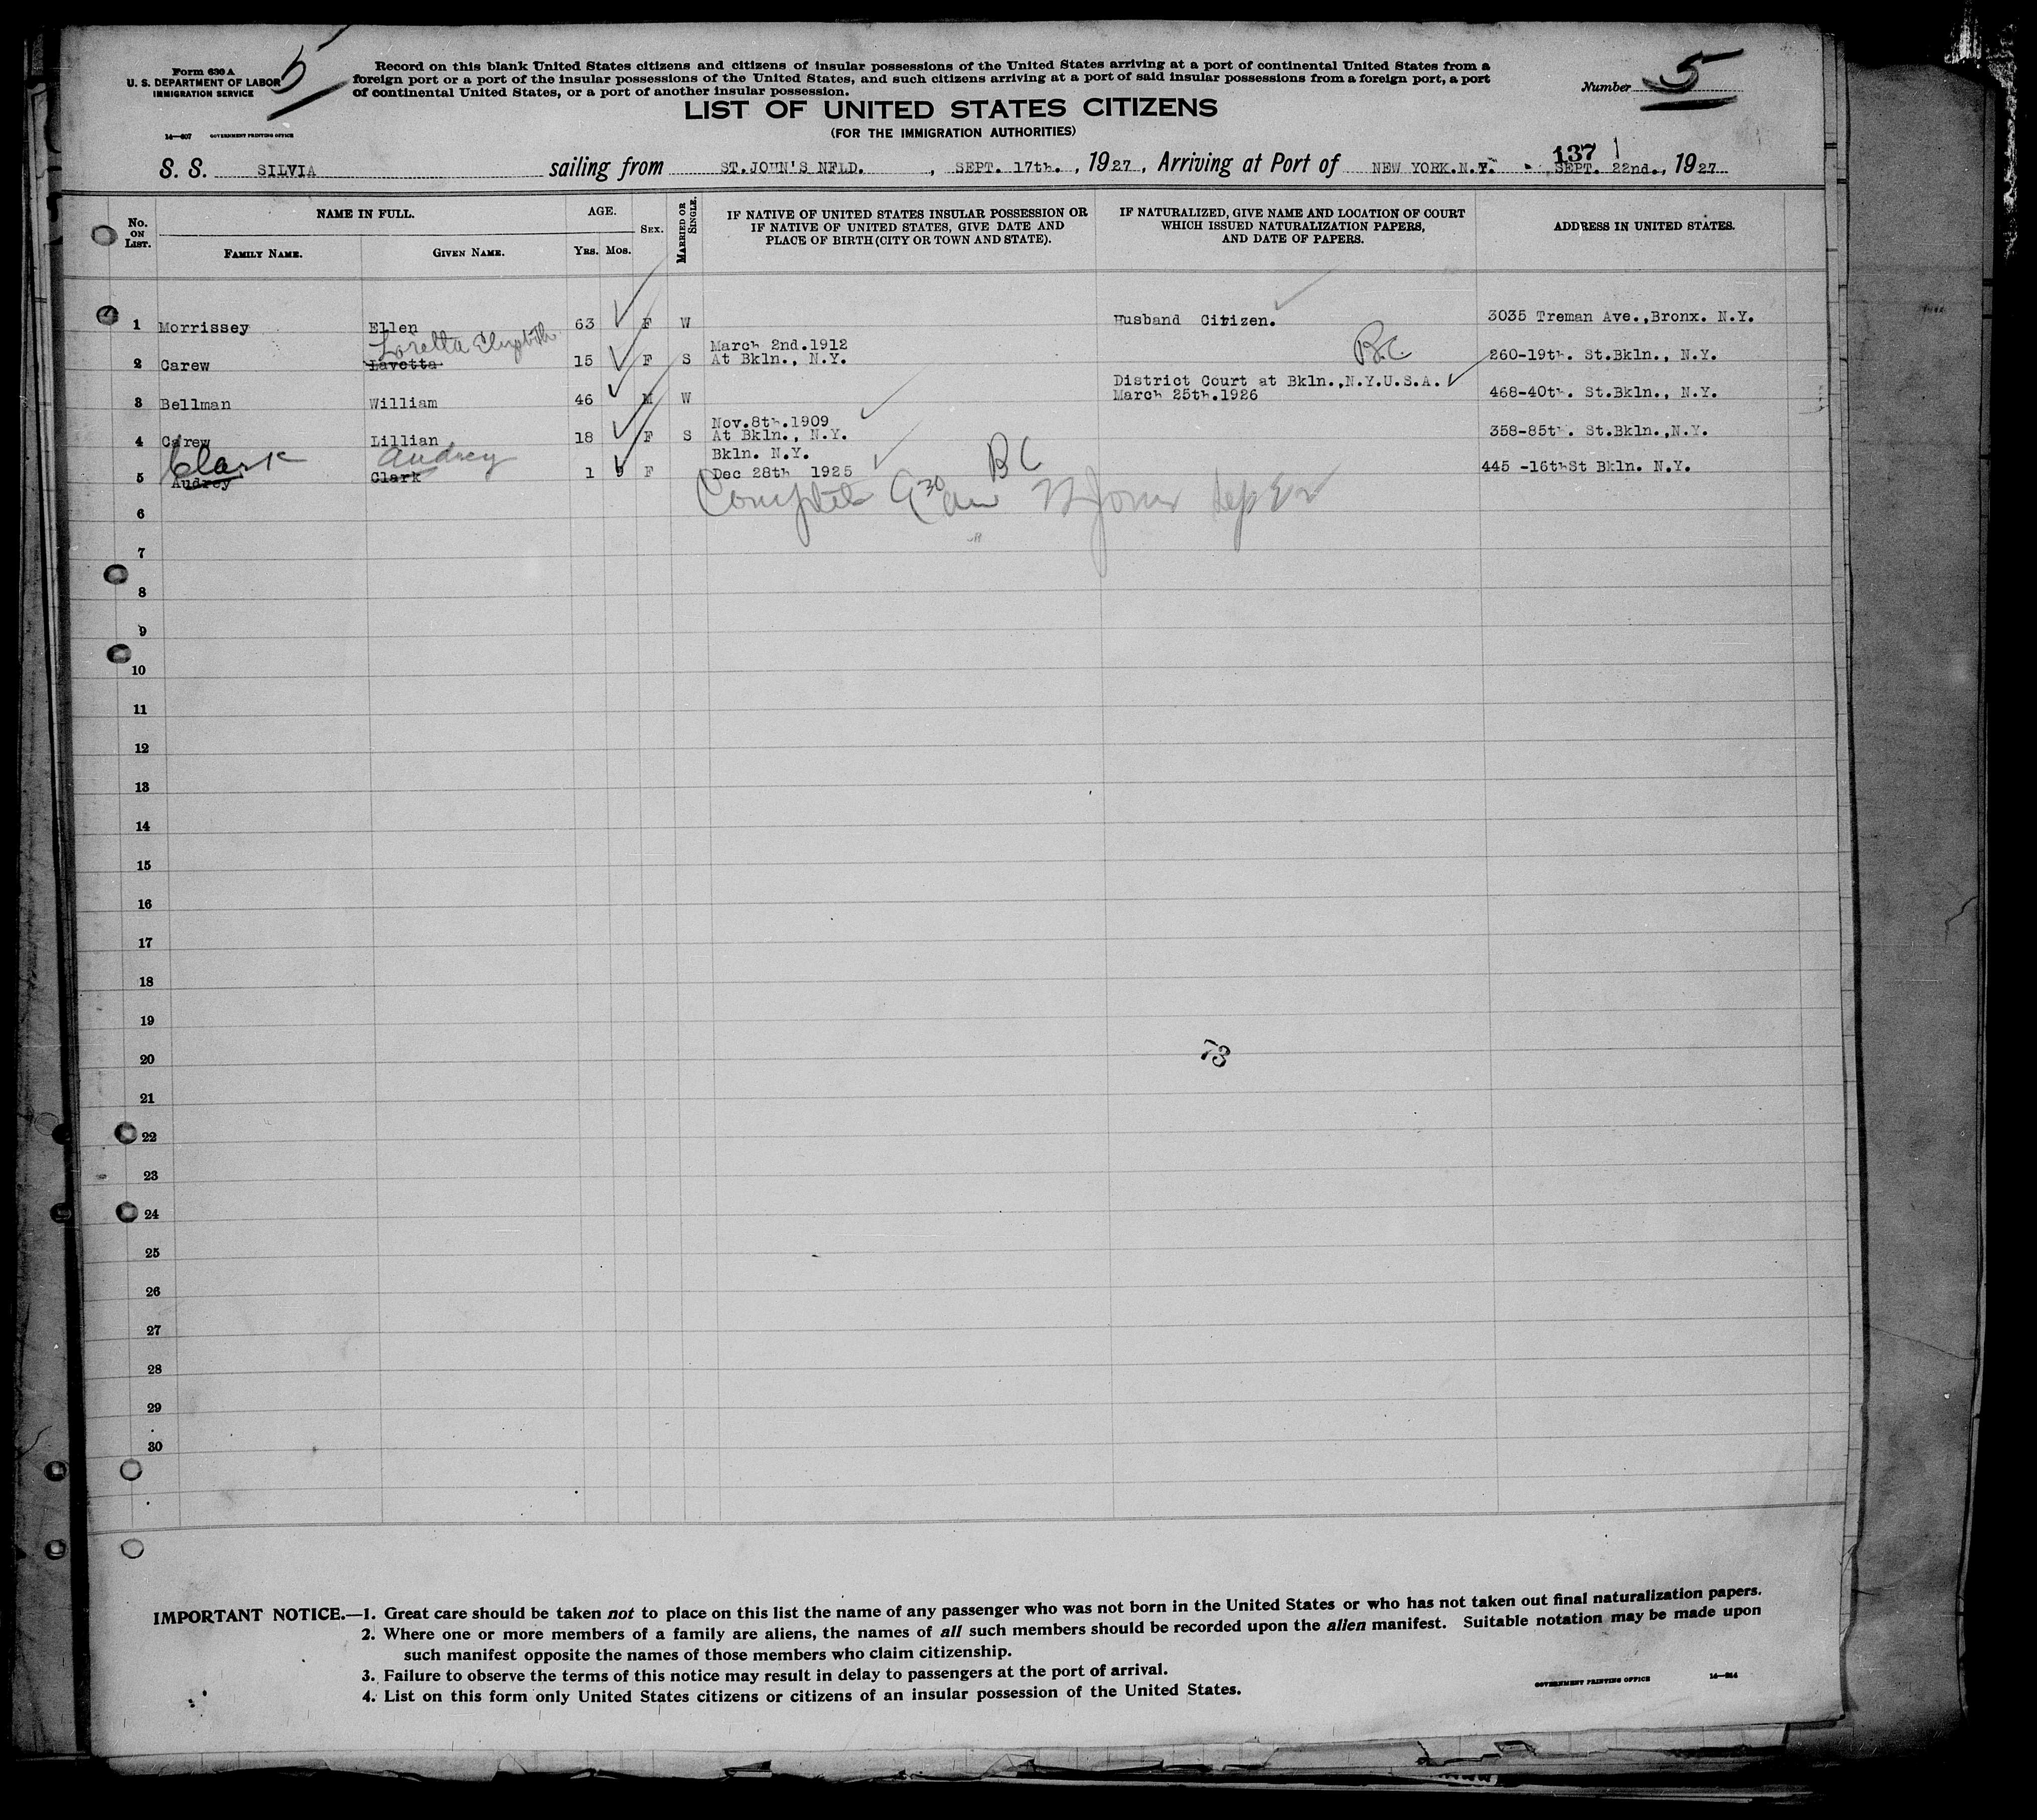 Form 630 A
U. S. DEPARTMENT OF LABOR
IMMIGRATION SERVICE
5
14—607 GOVERNMENT PRINTING OFFICE
Record on this blank United States citizens and citizens of insular possessions of the United States arriving at a port of continental United States from a
foreign port or a port of the insular possessions of the United States, and such citizens arriving at a port of said insular possessions from a foreign port, a port
of continental United States, or a port of another insular possession.
Number 5
LIST OF UNITED STATES CITIZENS
(FOR THE IMMIGRATION AUTHORITIES)
137
S. S. SILVIA sailing from ST.JOHN'S NFLD. , SEPT. 17th. , 1927 , Arriving at Port of NEW YORK.N.Y. SEPT. 22nd., 1927
No. ON LIST.
NAME IN FULL.
FAMILY NAME. GIVEN NAME.
AGE.
YRS. MOS.
SEX.
MARRIED OR SINGLE.
IF NATIVE OF UNITED STATES INSULAR POSSESSION OR
IF NATIVE OF UNITED STATES, GIVE DATE AND
PLACE OF BIRTH (CITY OR TOWN AND STATE).
IF NATURALIZED, GIVE NAME AND LOCATION OF COURT
WHICH ISSUED NATURALIZATION PAPERS,
AND DATE OF PAPERS.
ADDRESS IN UNITED STATES.
1 Morrissey Ellen 63 F W Husband Citizen. 3035 Treman Ave.,Bronx. N.Y.
Loretta Elizabeth
March 2nd.1912 B.C.
2 Carew Lavetta 15 F S At Bkln., N.Y. 260-19th. St.Bkln., N.Y.
District Court at Bkln.,N.Y.U.S.A.
3 Bellman William 46 M W March 25th.1926 468-40th. St.Bkln., N.Y.
Nov.8th.1909
4 Carew Lillian 18 F S At Bkln., N.Y. 358-85th. St.Bkln.,N.Y.
Clark Audrey Bkln. N.Y. BC
5 Audrey Clark 1 9 F Dec 28th 1925 445 -16thSt Bkln. N.Y.
Complete 9 30 am
6
7
8
9
10
11
12
13
14
15
16
17
18
19
20
73
21
22
23
24
25
26
27
28
29
30
IMPORTANT NOTICE.—1. Great care should be taken not to place on this list the name of any passenger who was not born in the United States or who has not taken out final naturalization papers.
2. Where one or more members of a family are aliens, the names of all such members should be recorded upon the alien manifest. Suitable notation may be made upon
such manifest opposite the names of those members who claim citizenship.
3. Failure to observe the terms of this notice may result in delay to passengers at the port of arrival.
4. List on this form only United States citizens or citizens of an insular possession of the United States.
GOVERNMENT PRINTING OFFICE